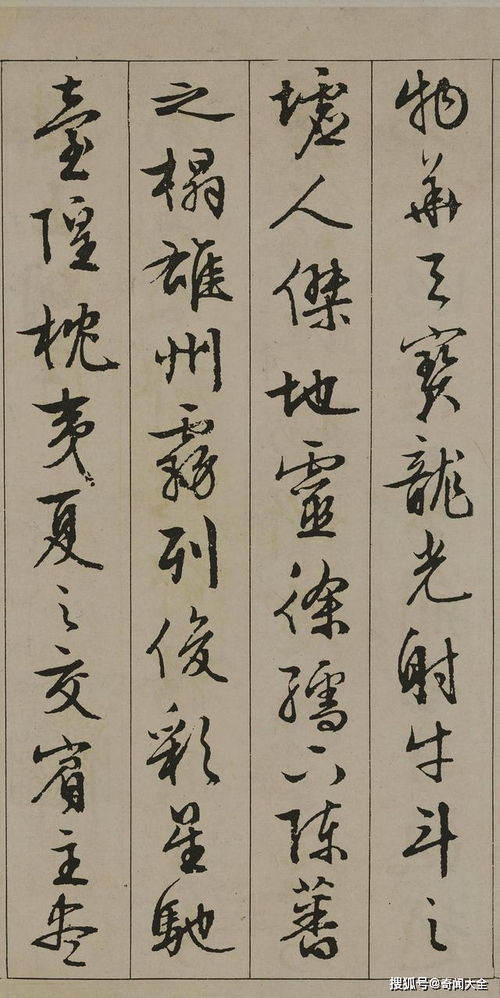 物華天寶龍光射牛斗之
墟人傑地靈徐孺下陳蕃
之榻雄州霧列俊彩星馳
臺隍枕夷夏之交賓主盡
搜狐号@奇闻大全